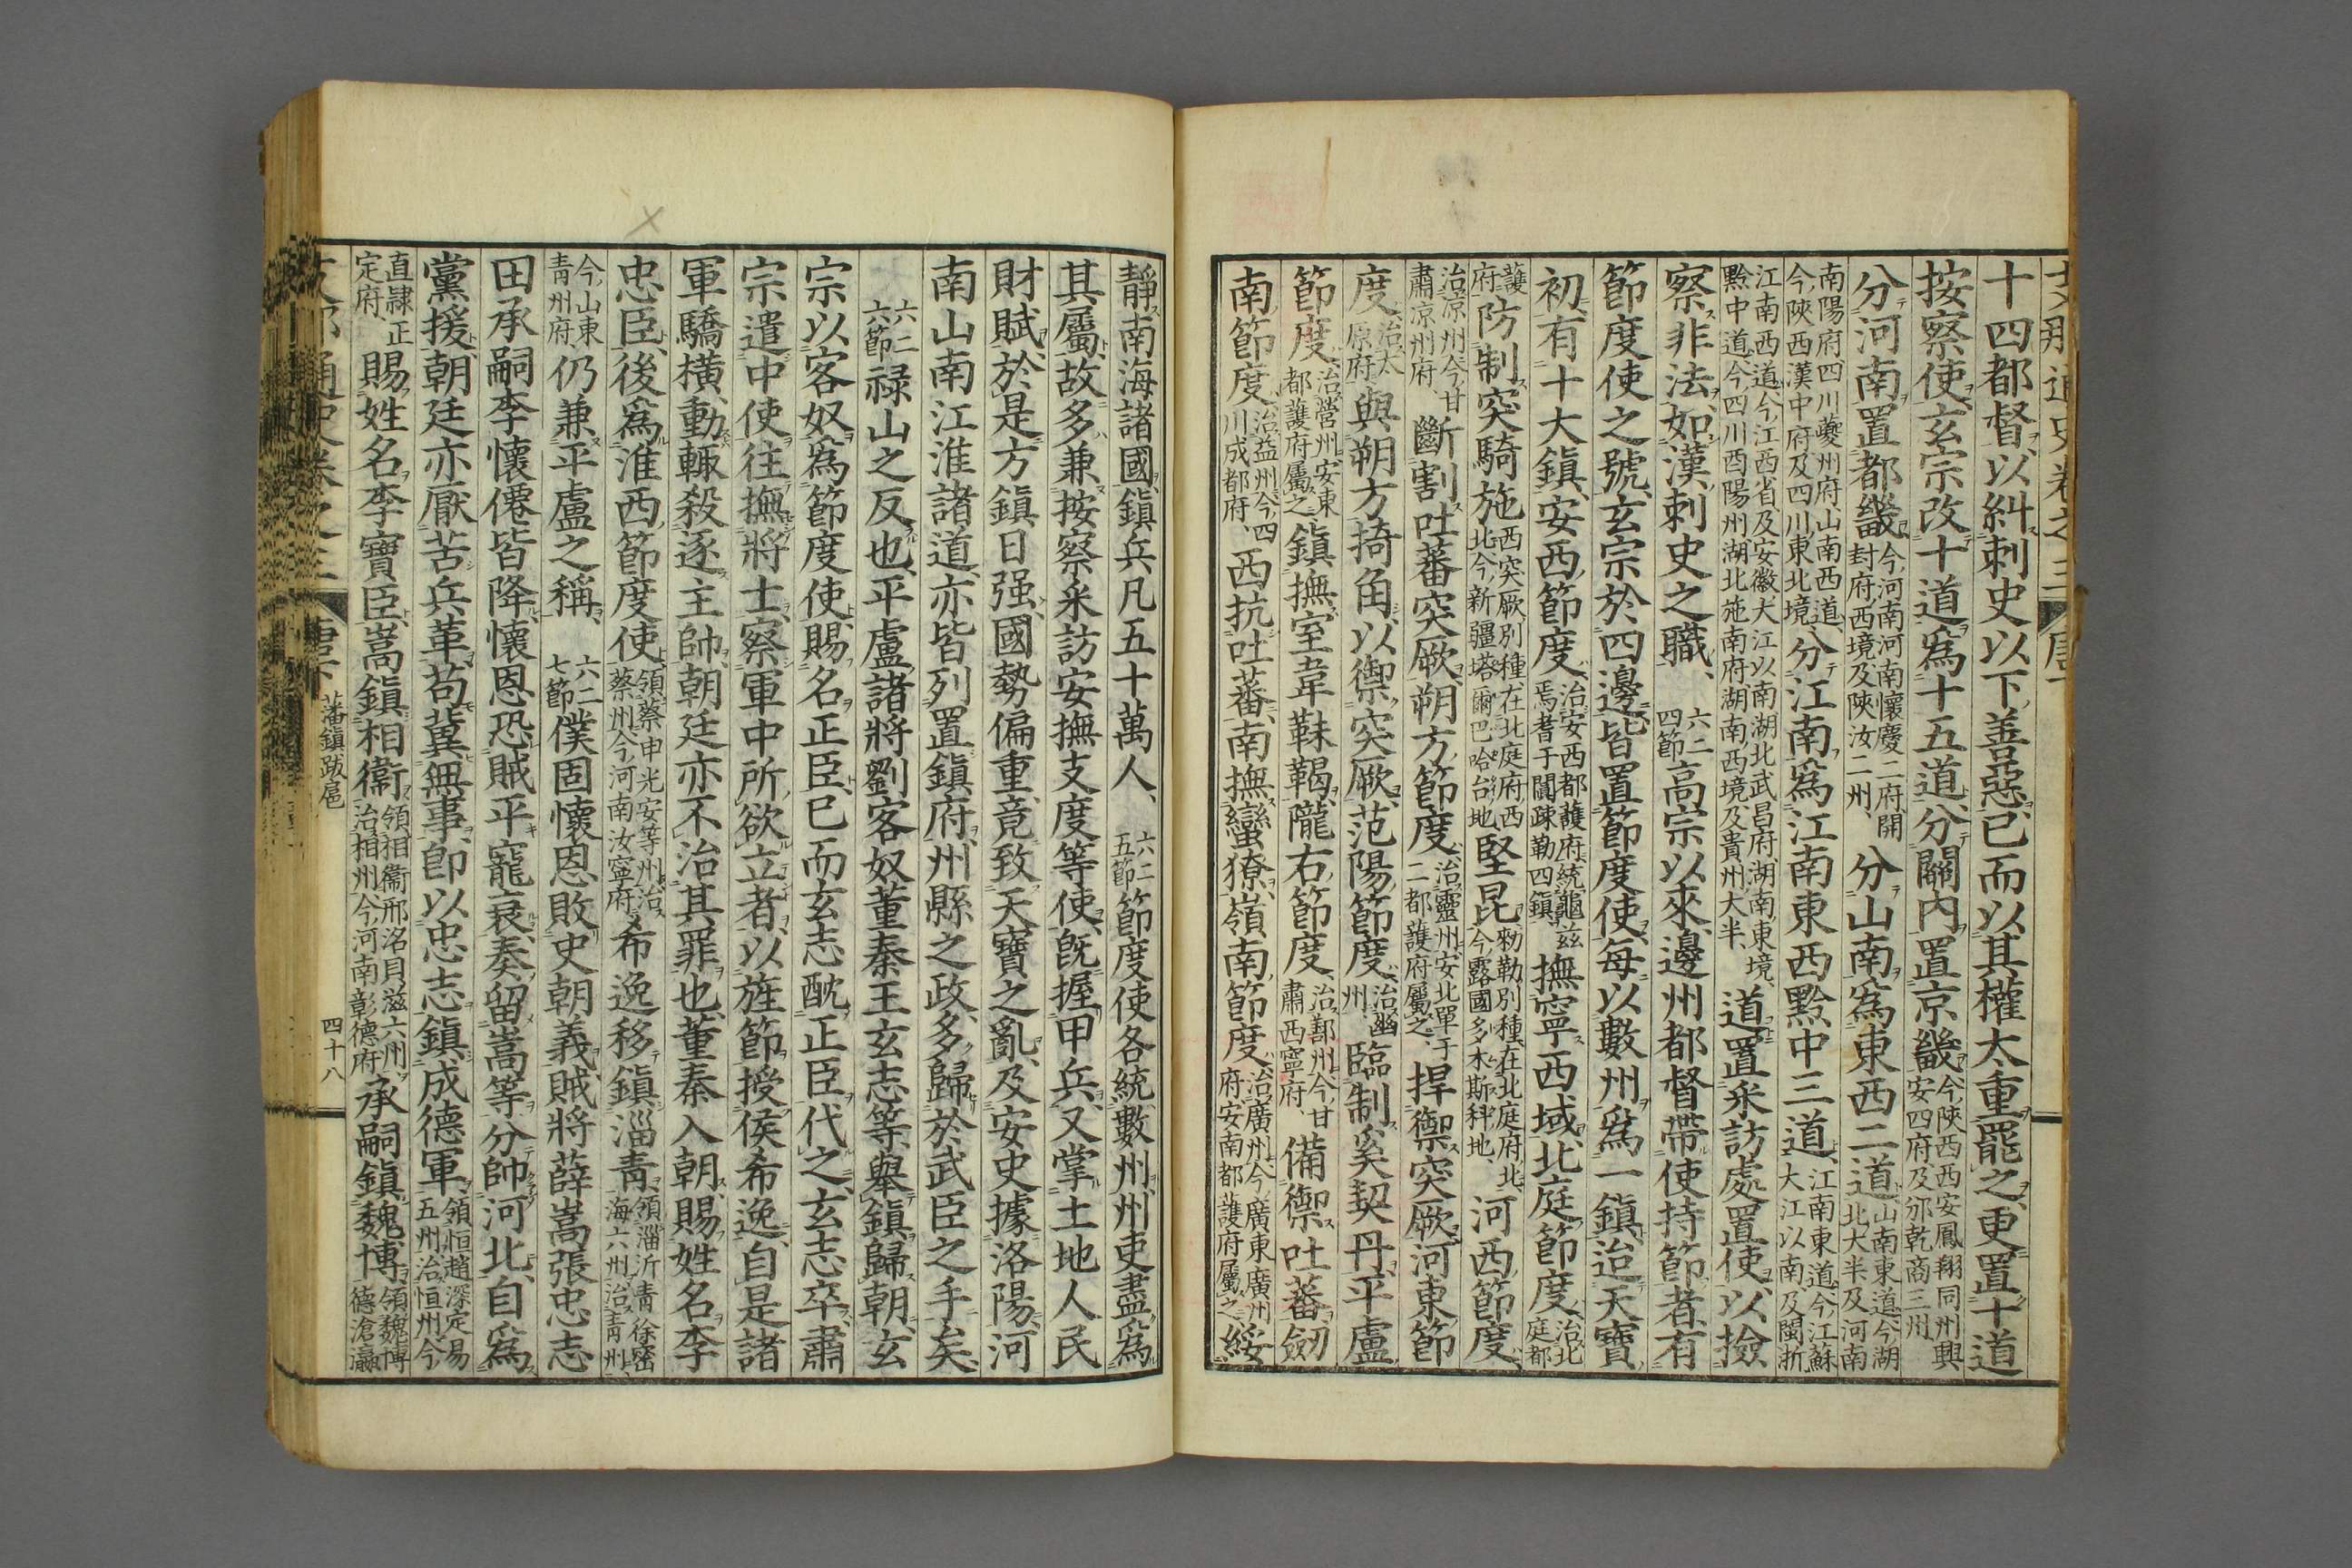 十四都督、以糾刺史以下善惡、已而以其權太重罷之、更置十道
按察使、玄宗改十道爲十五道、分關內置京畿、今陝西西安鳳翔同州興安四府及邠乾商三州、
分河南置都畿、今河南河南懷慶二府、開封府西境、及陝汝二州、分山南爲東西二道、山南東道、今湖北大半及河南
南陽府四川夔州府、山南西道、今陝西漢中府、及四川東北境、分江南爲江南東西黔中三道、江南東道、今江蘇大江以南、及閩浙
江南西道、今江西省、及安徽大江以南、湖北武昌府、湖南東境、黔中道、今四川酉陽州湖北施南府湖南西境、及貴州大半、道置采訪處置使、以撿
察非法、如漢刺史之職、六二四節高宗以來、邊州都督帶使持節者、有
節度使之號、玄宗於四邊、皆置節度使、每以數州爲一鎭、迨天寶
初、有十大鎭、安西節度、治安西都護府、統龜玆焉耆于闐疎勒四鎭、撫寧西域、北庭節度、治北庭都
護府防制突騎施西突厥別種、在北庭府西北、今新疆塔爾巴哈台地堅昆、勅勒別種、在北庭府北、今露國多木斯科地、河西節度、
治涼州、今甘肅涼州府、斷割吐蕃突厥、朔方節度、治靈州、安北單于二都護府屬之、捍禦突厥、河東節
度、治太原府與朔方掎角、以禦突厥、范陽節度、治幽州、臨制奚契丹、平盧
節度、治營州、安東都護府屬之、鎭撫室韋靺鞨、隴右節度、治鄯州、今甘肅西寧府、備禦吐蕃、劒
南節度、治益州、今四川成都府、西抗吐蕃、南撫蠻獠、嶺南節度、治廣州、今廣東廣州府、安南都護府屬之、綏
靜南海諸國、鎭兵凡五十萬人、六二五節節度使各統數州、州吏盡爲
其屬、故多兼按察采訪安撫支度等使、旣握甲兵、又掌土地人民
財賦、於是方鎭日强、國勢偏重、竟致天寶之亂、及安史據洛陽、河
南山南江淮諸道、亦皆列置鎭府、州縣之政、多歸於武臣之手矣、
六二六節祿山之反也、平盧諸將劉客奴董秦王玄志等、舉鎭歸朝、玄
宗以客奴爲節度使、賜名正臣、已而玄志酖正臣代之、玄志卒、肅
宗遣中使往撫將士、察軍中所欲立者、以旌節授侯希逸、自是諸
軍驕橫、動輒殺逐主帥、朝廷亦不治其罪也、董秦入朝、賜姓名李
忠臣、後爲淮西節度使、領蔡申光安等州、治蔡州、今河南汝寧府、希逸移鎭淄青、領淄沂青徐密海六州、治青州、
今山東青州府仍兼平盧之稱、六二七節僕固懷恩敗史朝義、賊將薛嵩張忠志
田承嗣李懷僊皆降、懷恩恐賊平寵衰、奏留嵩等分帥河北、自爲
黨援、朝廷亦厭苦兵革、苟冀無事、卽以忠志鎭成德軍、領恒趙深定易五州、治恒州、今
直隸正定府、賜姓名李寶臣、嵩鎭相衞、領相衞邢洺貝滋六州、治相州、今河南彰德府、承嗣鎭魏博、領魏博德滄瀛
唐下
藩鎭跋扈
四十八